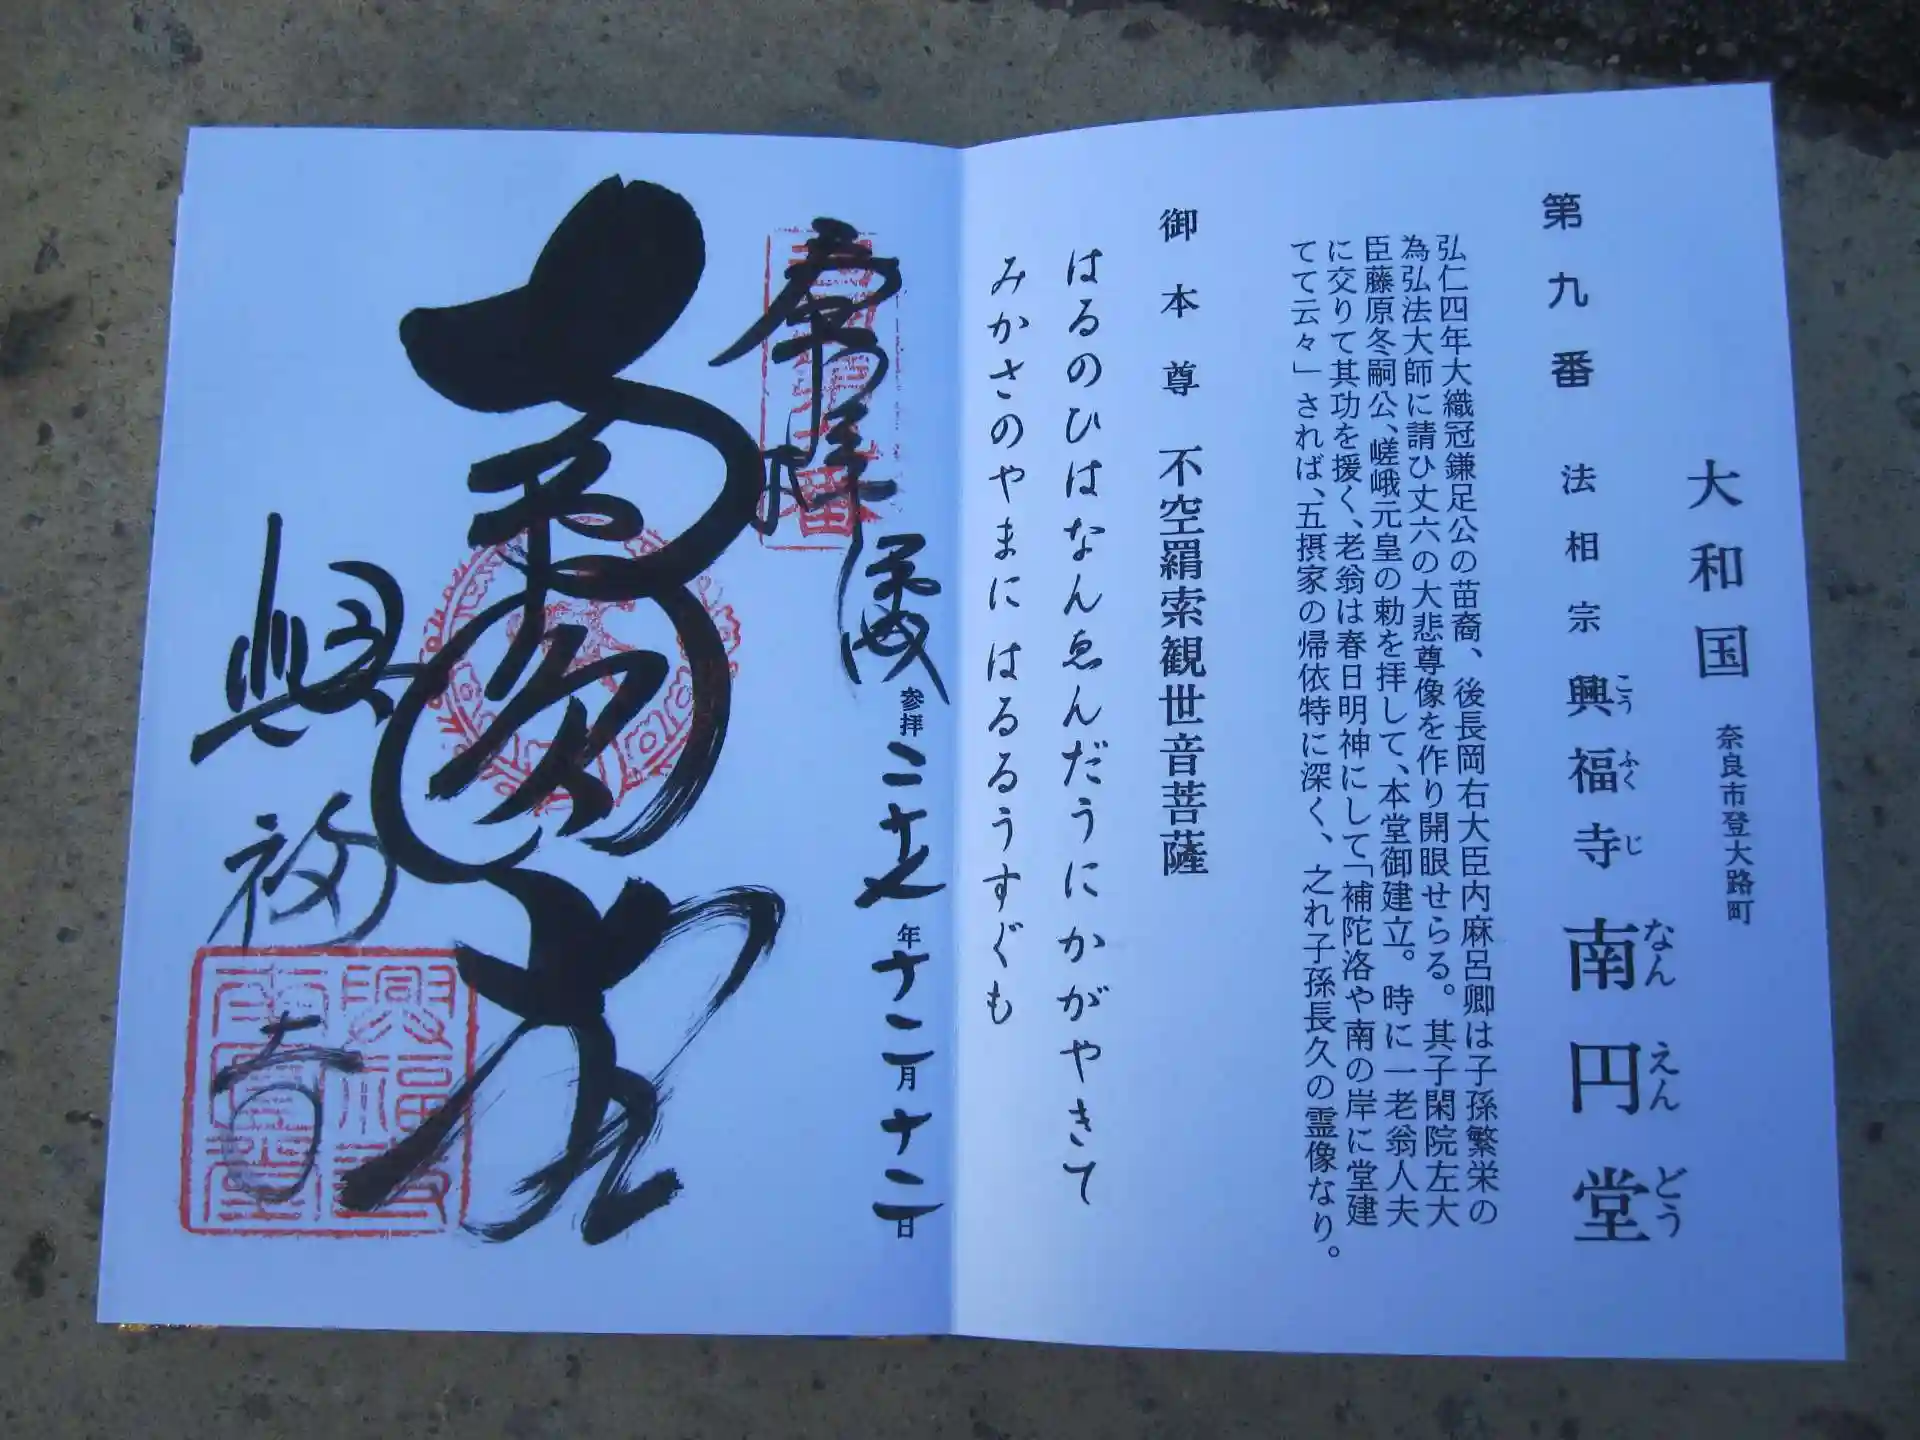 大和国 奈良市登大路町
第九番 法相宗 興福寺 南円堂
こうふくじ なんえんどう
弘仁四年大織冠鎌足公の苗裔、後長岡右大臣内麻呂卿は子孫繁栄の
為弘法大師に請ひ丈六の大悲尊像を作り開眼せらる。其子閑院左大
臣藤原冬嗣公、嵯峨元皇の勅を拝して、本堂御建立。時に一老翁人夫
に交りて其功を援く、老翁は春日明神にして「補陀洛や南の岸に堂建
てて云々」されば、五摂家の帰依特に深く、之れ子孫長久の霊像なり。
御本尊 不空羂索観世音菩薩
はるのひはなんゑんだうにかがやきて
みかさのやまにはるるうすぐも
奉拝
参拝 二十七年十二月十二日
興福寺